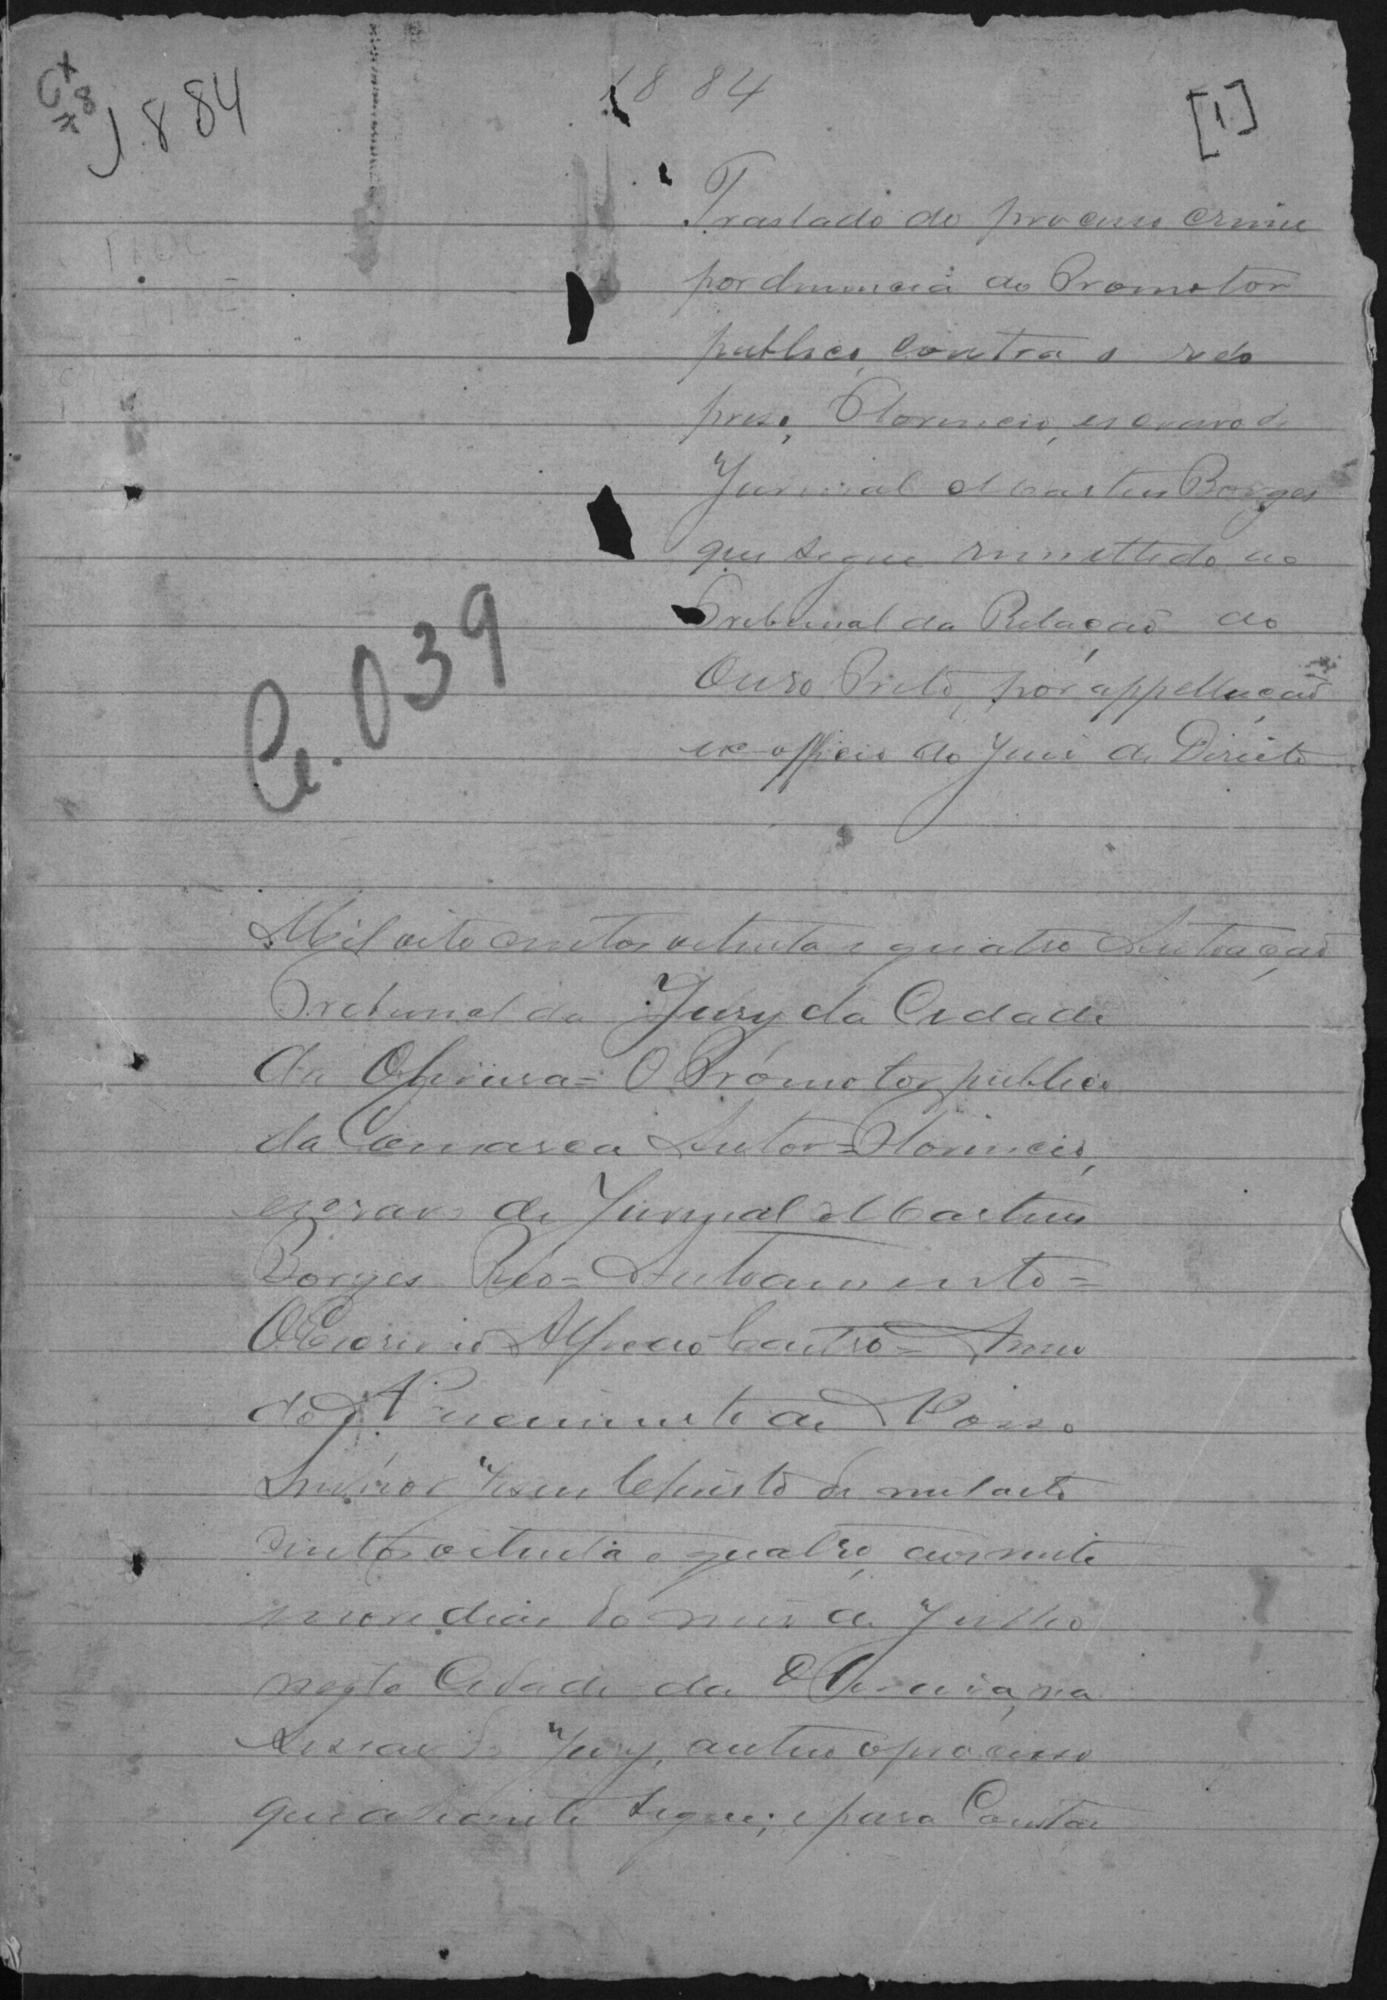 Cx 8
1884
1884
[1]
Traslado do processo crime
por denuncia do Promotor
publico, contra o reo
preso, Florencio, escravo de
Juvenal Martins Borges
que segue remettido ao
Tribunal da Relação do
Ouro Preto, por appellação
ex-officio do Juiz de Direito
Ce. 039
Mil oito centos oitenta e quatro Autoação
Tribunal do Jury da Cidade
da Oliveira = O Promotor publico
da Comarca Autor = Florencio,
escravo de Juvenal Martins
Borges Réo = Autoamento =
O Escrivão Alfredo Castro = Anno
do Nascimento de Nosso
Senhor Jesus Christo de mil oito
centos oitenta e quatro, aos
nove dias do mez de Julho
nesta Cidade da Oliveira, na
sessão do Jury, autuo o processo
que adiante segue; e para constar